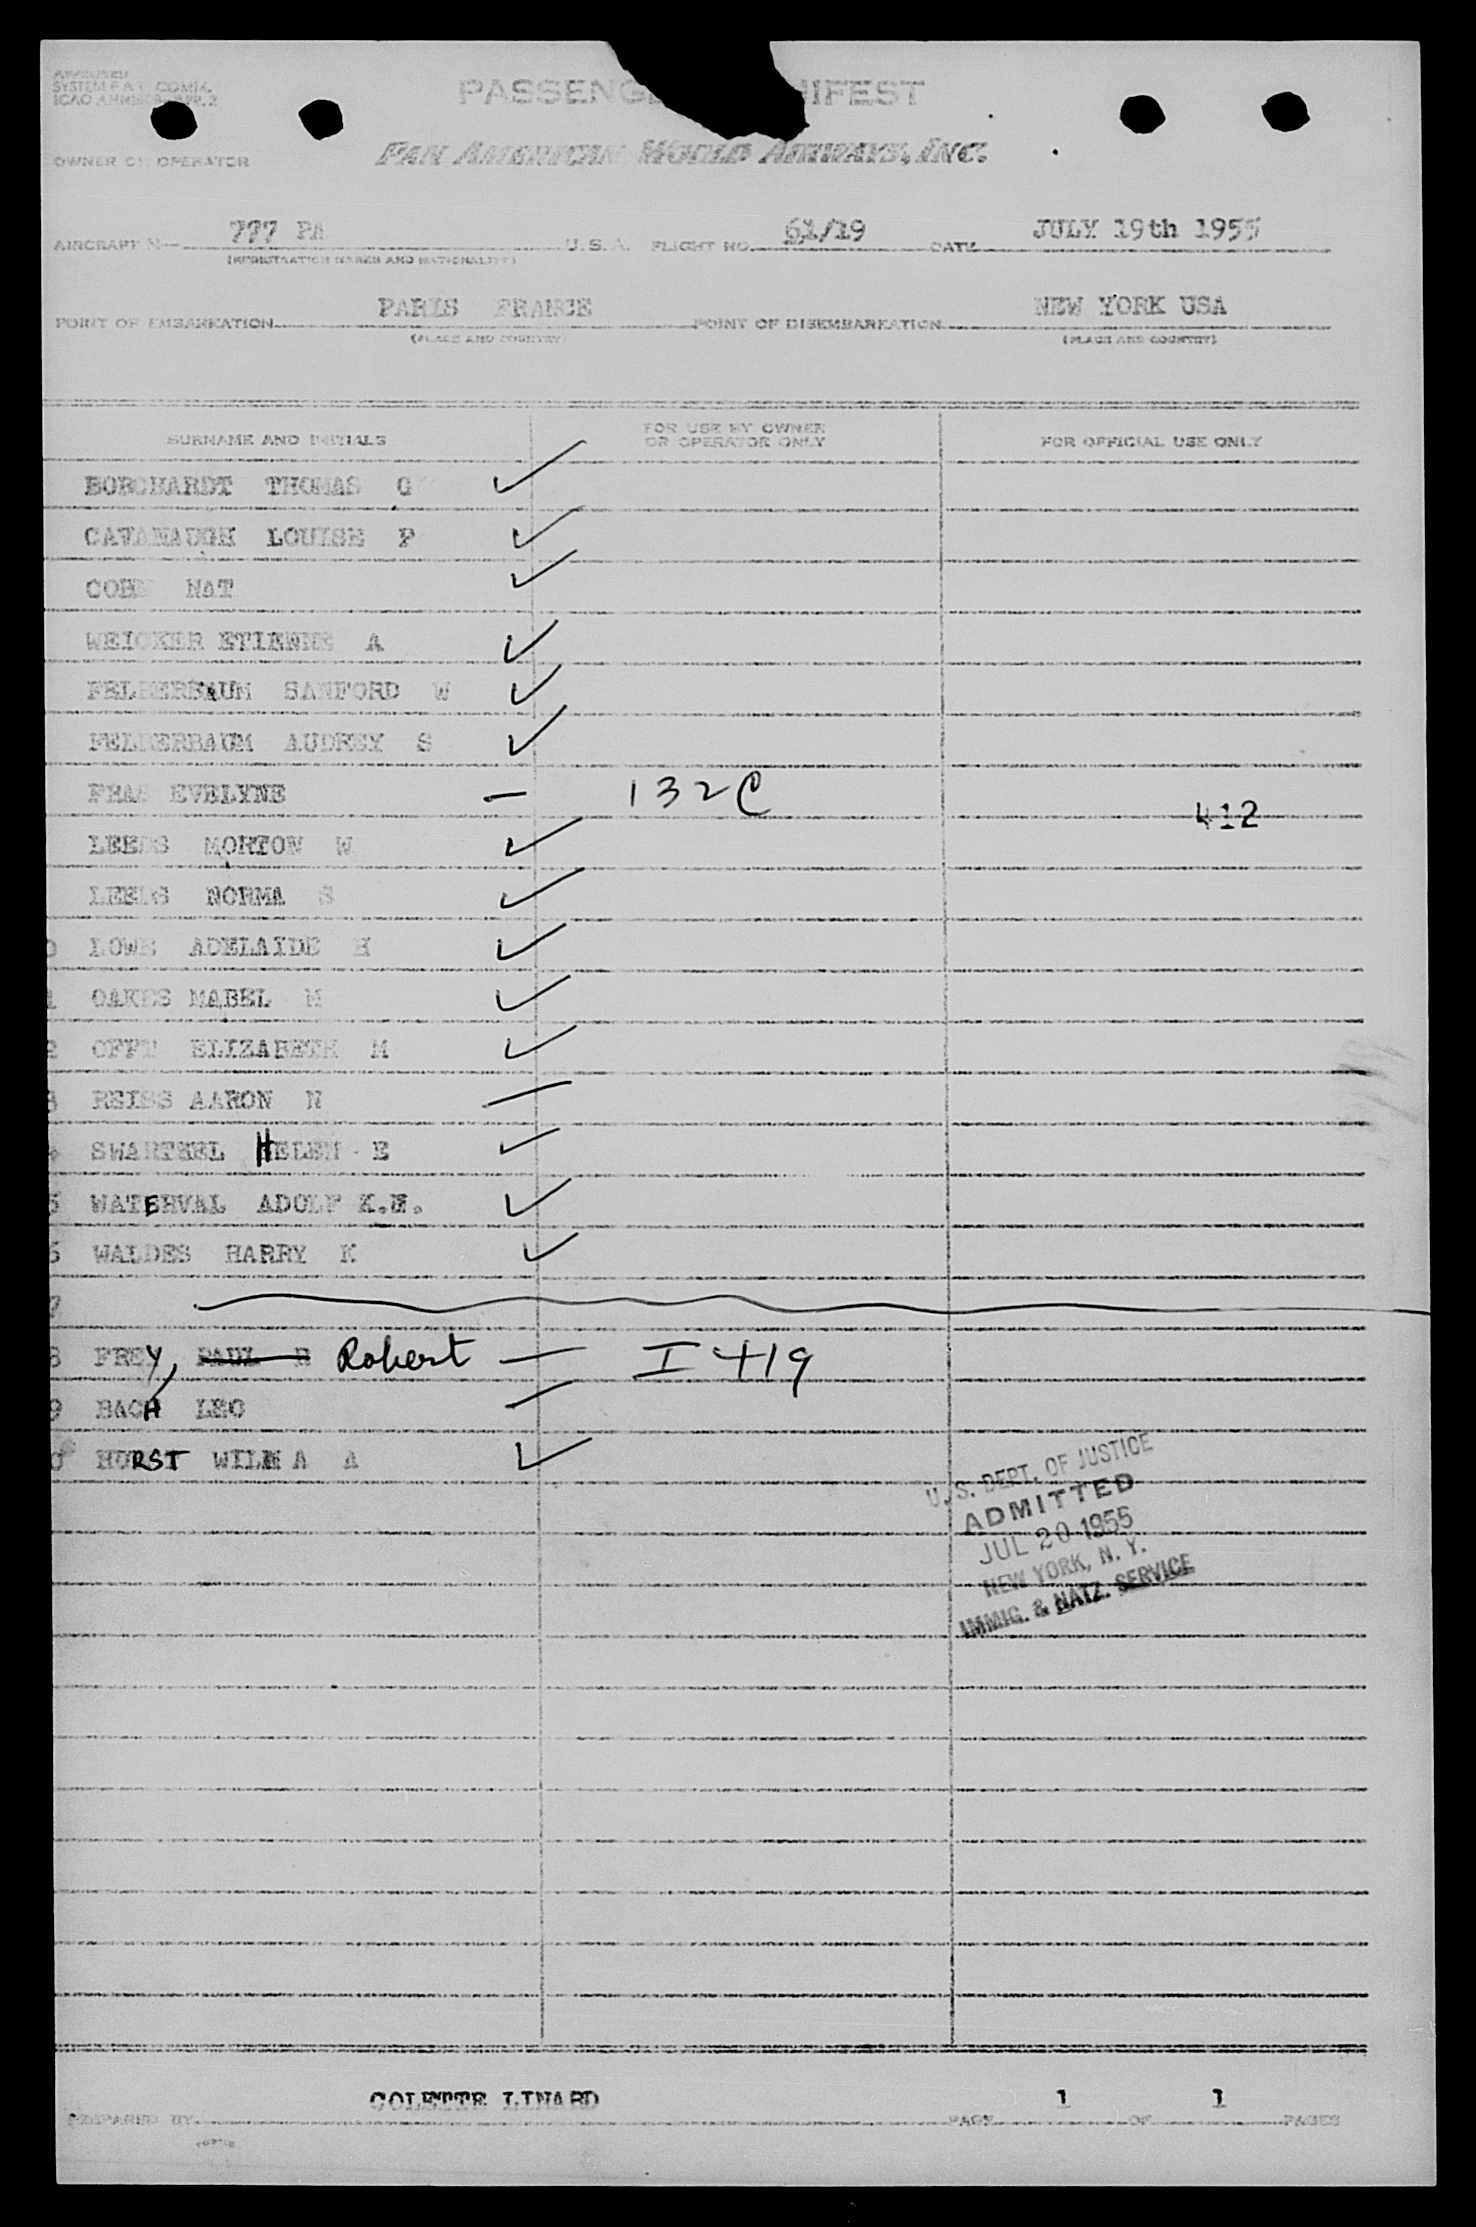 PASSENG IFEST
OWNER OR OPERATOR PAN AMERICAN WORLD AIRWAYS, INC.
AIRCRAFT 777 PA U.S.A. FLIGHT NO. 61/19 DATE JULY 19th 1955
(REGISTRATION MARKS AND NATIONALITY)
POINT OF EMBARKATION PARIS FRANCE POINT OF DISEMBARKATION NEW YORK USA
(PLACE AND COUNTRY) (PLACE AND COUNTRY)
SURNAME AND INITIALS FOR USE BY OWNER OR OPERATOR ONLY FOR OFFICIAL USE ONLY
BORCHARDT THOMAS G
CAVANAUGH LOUISE P
NAT
WEICKER ETIENNE A
SANFORD W
AUDREY S
EVELYNE 132C
412
LEEDS MORTON W
LEEDS NORMA S
0 LOWE ADELAIDE H
1 OAKES MABEL M
2 ELIZABETH M
3 REISS AARON N
HELEN E
5 WATERVAL ADOLF
6 WALDES HARRY K
7
8 FREY, PAUL Robert I 419
9 BACH LEO
0 HURST WILMA A
U.S. DEPT. OF JUSTICE
ADMITTED
JUL 20 1955
NEW YORK, N. Y.
IMMIG. & NATZ. SERVICE
COLETTE LINARD
PREPARED BY PAGE 1 OF 1 PAGES